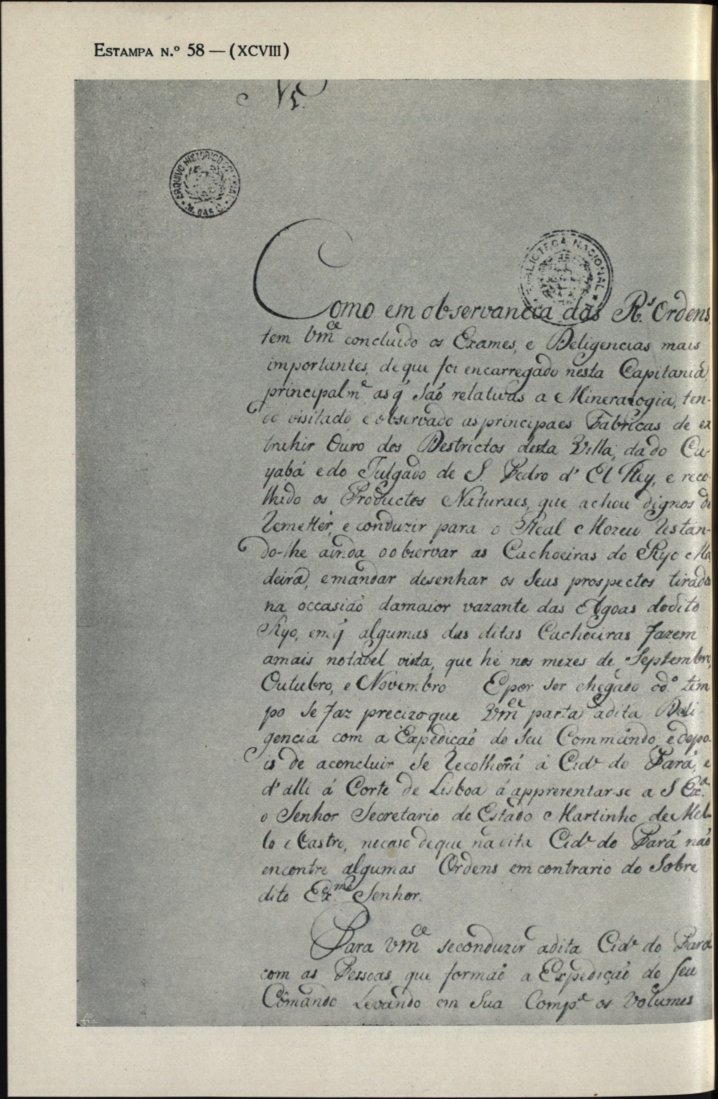 Estampa n.º 58 — (XCVIII)
ARQUIVO HISTORICO COLONIAL
BIBLIOTECA NACIONAL
Como em observancia das R.s Ordens,
tem Vm.ce concluido os Exames, e Deligencias mais
importantes, de que foi encarregado nesta Capitania,
principalm.e as q̃ são relativas a Mineralogia, ten-
do visitado, e observado as principaes Fabricas de ex
trahir Ouro dos Destrictos desta Villa, da do Cu-
yabá e do Julgado de S. Pedro d' El Rey, e reco-
lhido os Productos Naturaes, que achou dignos de
Remetter, e conduzir para o Real Mozeu Restan-
do-lhe ainda o observar as Cachoeiras do Ryo Ma
deira, e mandar desenhar os seus prospectos tirados
na occasião da maior vazante das Agoas do dito
Ryo, em q̃ algumas das ditas Cachoeiras fazem
a mais notabel vista, que hé nos mezes de Septembro,
Outubro, e Novembro E por ser chegado o d.o tem
po se faz precizo que Vm.ce parta á dita Deli-
gencia com a Expedição do seu Commando, e depo-
is de a concluir se Recolherá á Cid.e do Pará, e
d'alli á Corte de Lisboa á apprerentar-se a S Ex.a
o Senhor Secretario de Estado Martinho de Mel-
lo e Castro, no caso de que na dita Cid.e do Pará não
encontre algumas Ordens em contrario do Sobre
dito Ex.mo Senhor.
Para Vm.ce se conduzir á dita Cid.e do Pará
com as Pessoas, que formão a Expedição do seu
Cômando Levando em Sua Comp.a os Volumes